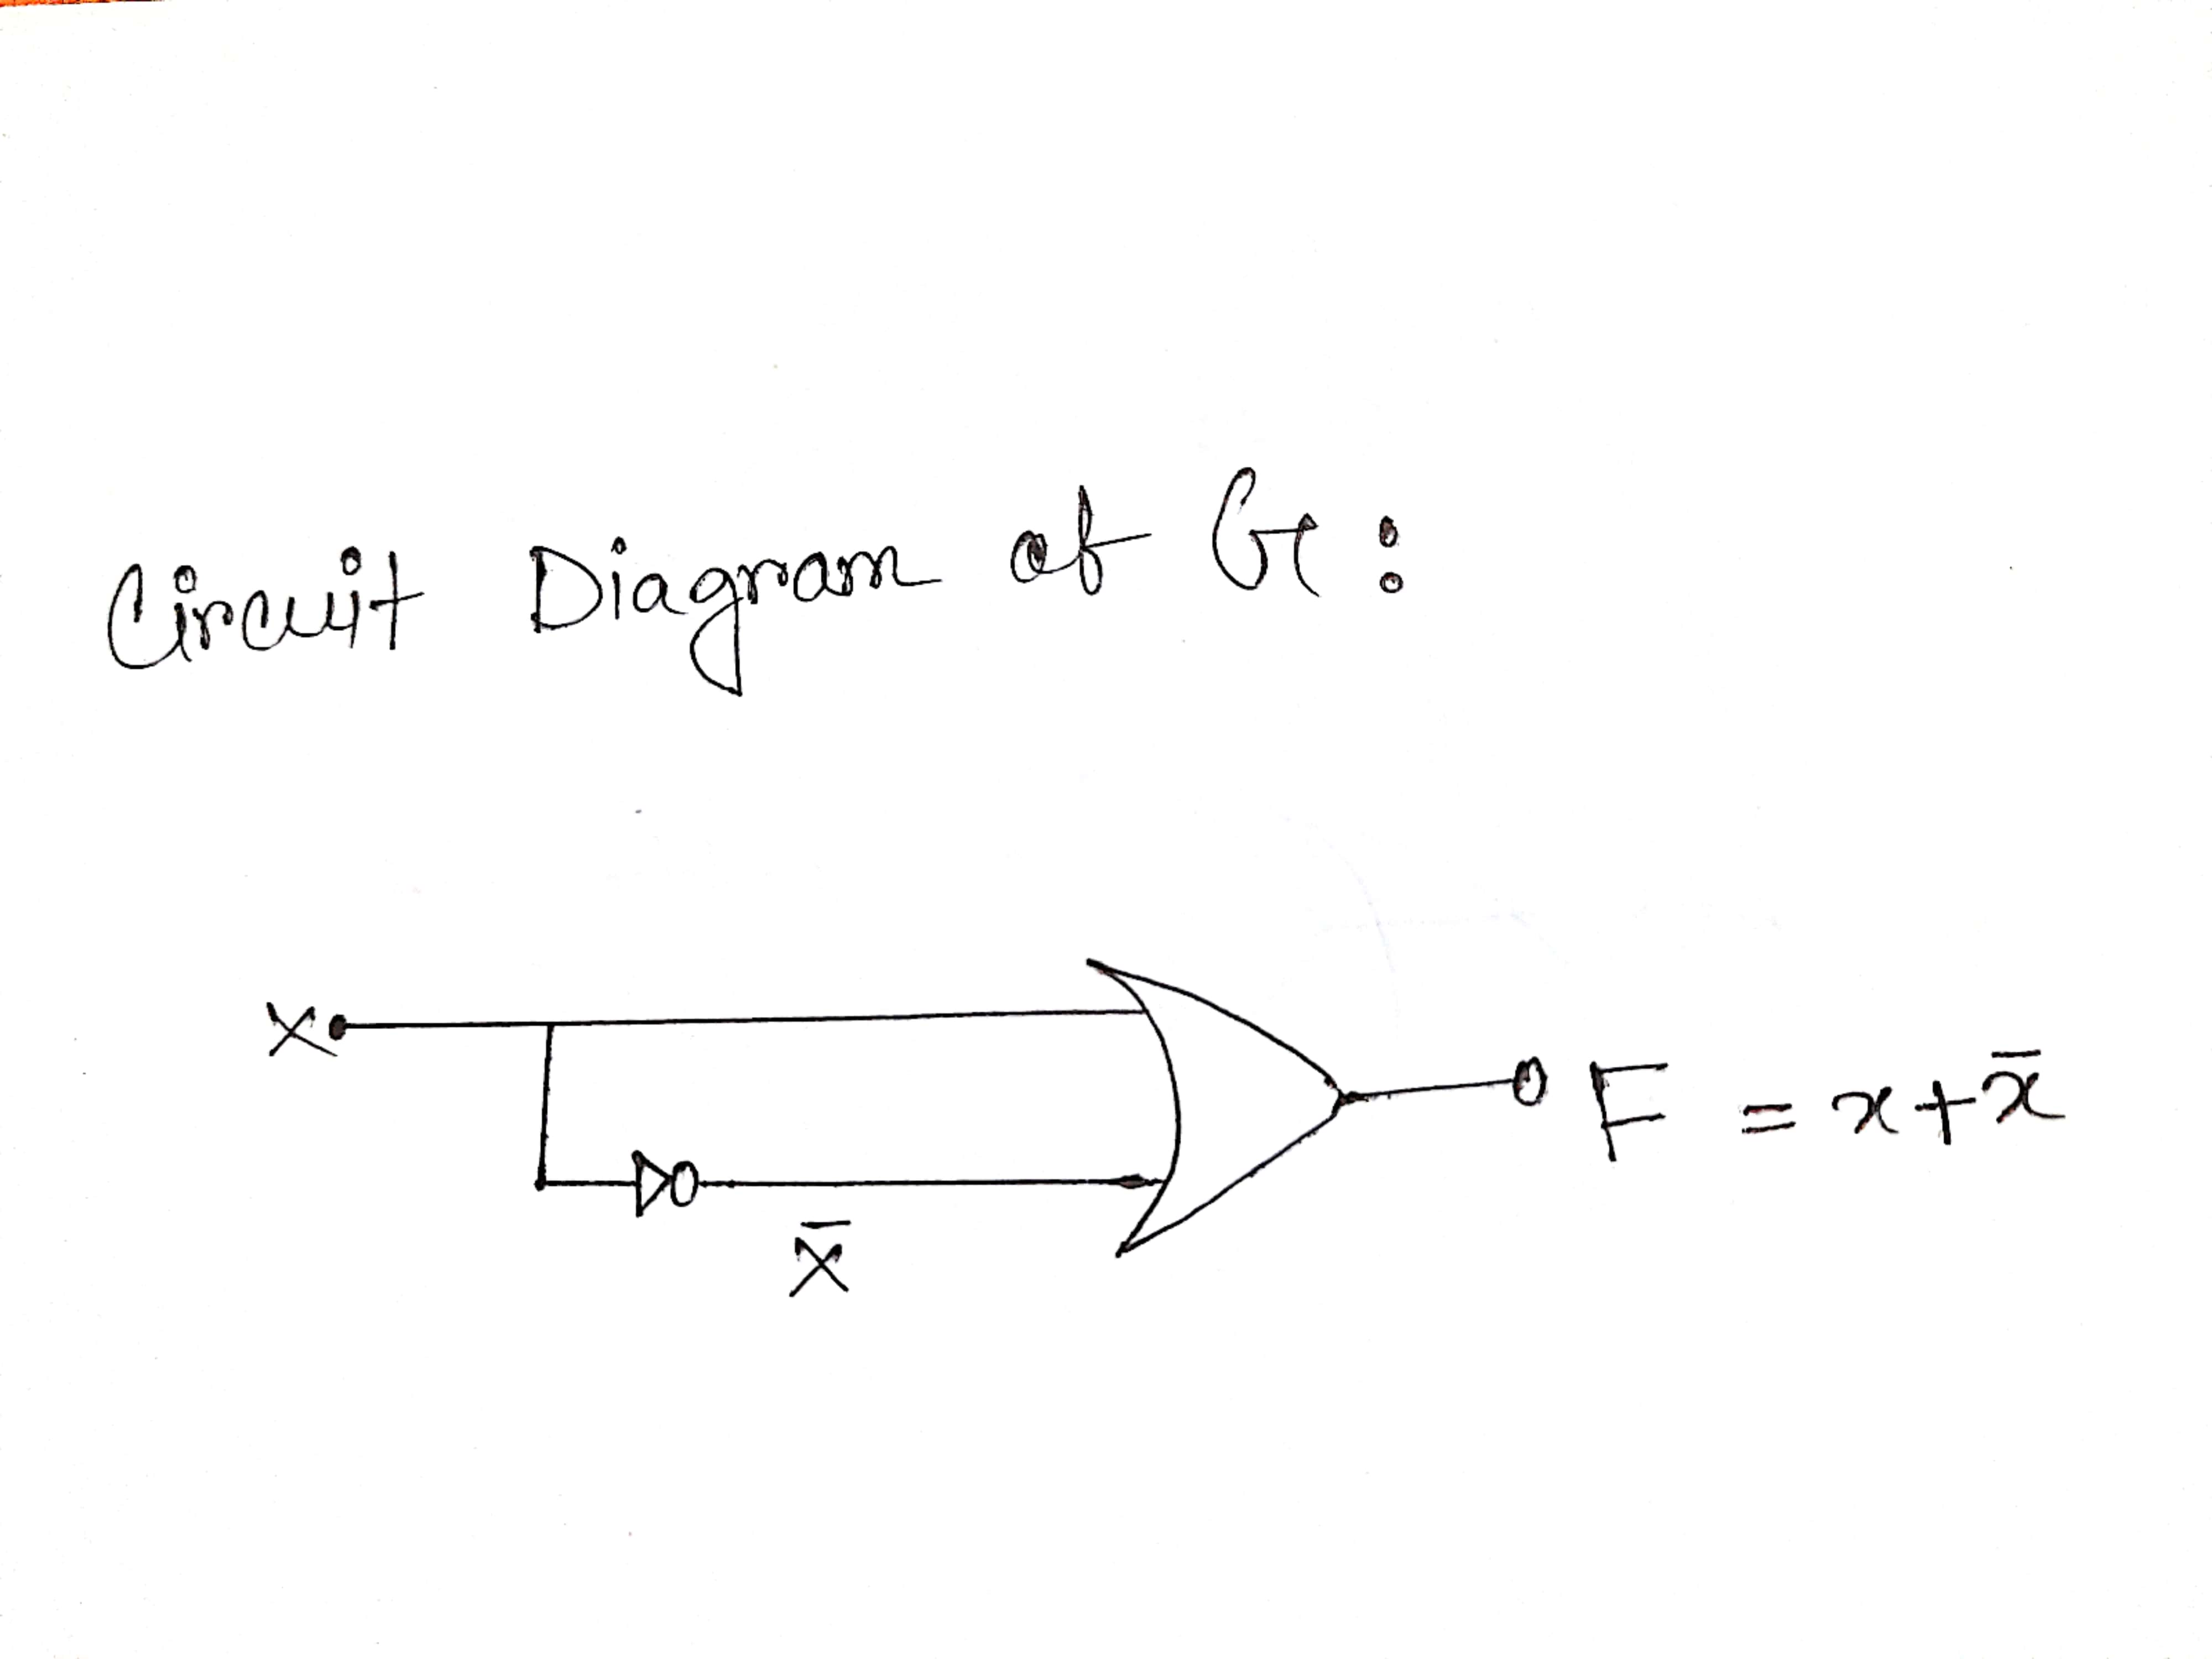 Circuit Diagram of G:
X
F = x+x̄
X̄